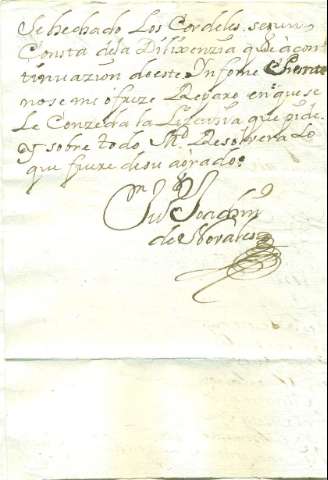 Se hechado Los Cordeles, segun
Consta dela Dilixenzia que acon
tinuazion de este Ynforme
nose me ofreze Reparo en que se
Le Conzeda la Lizenzia que pide
Y sobre todo M.d Resolvera Lo
que fuere desu agrado:
Joachin
de Morales